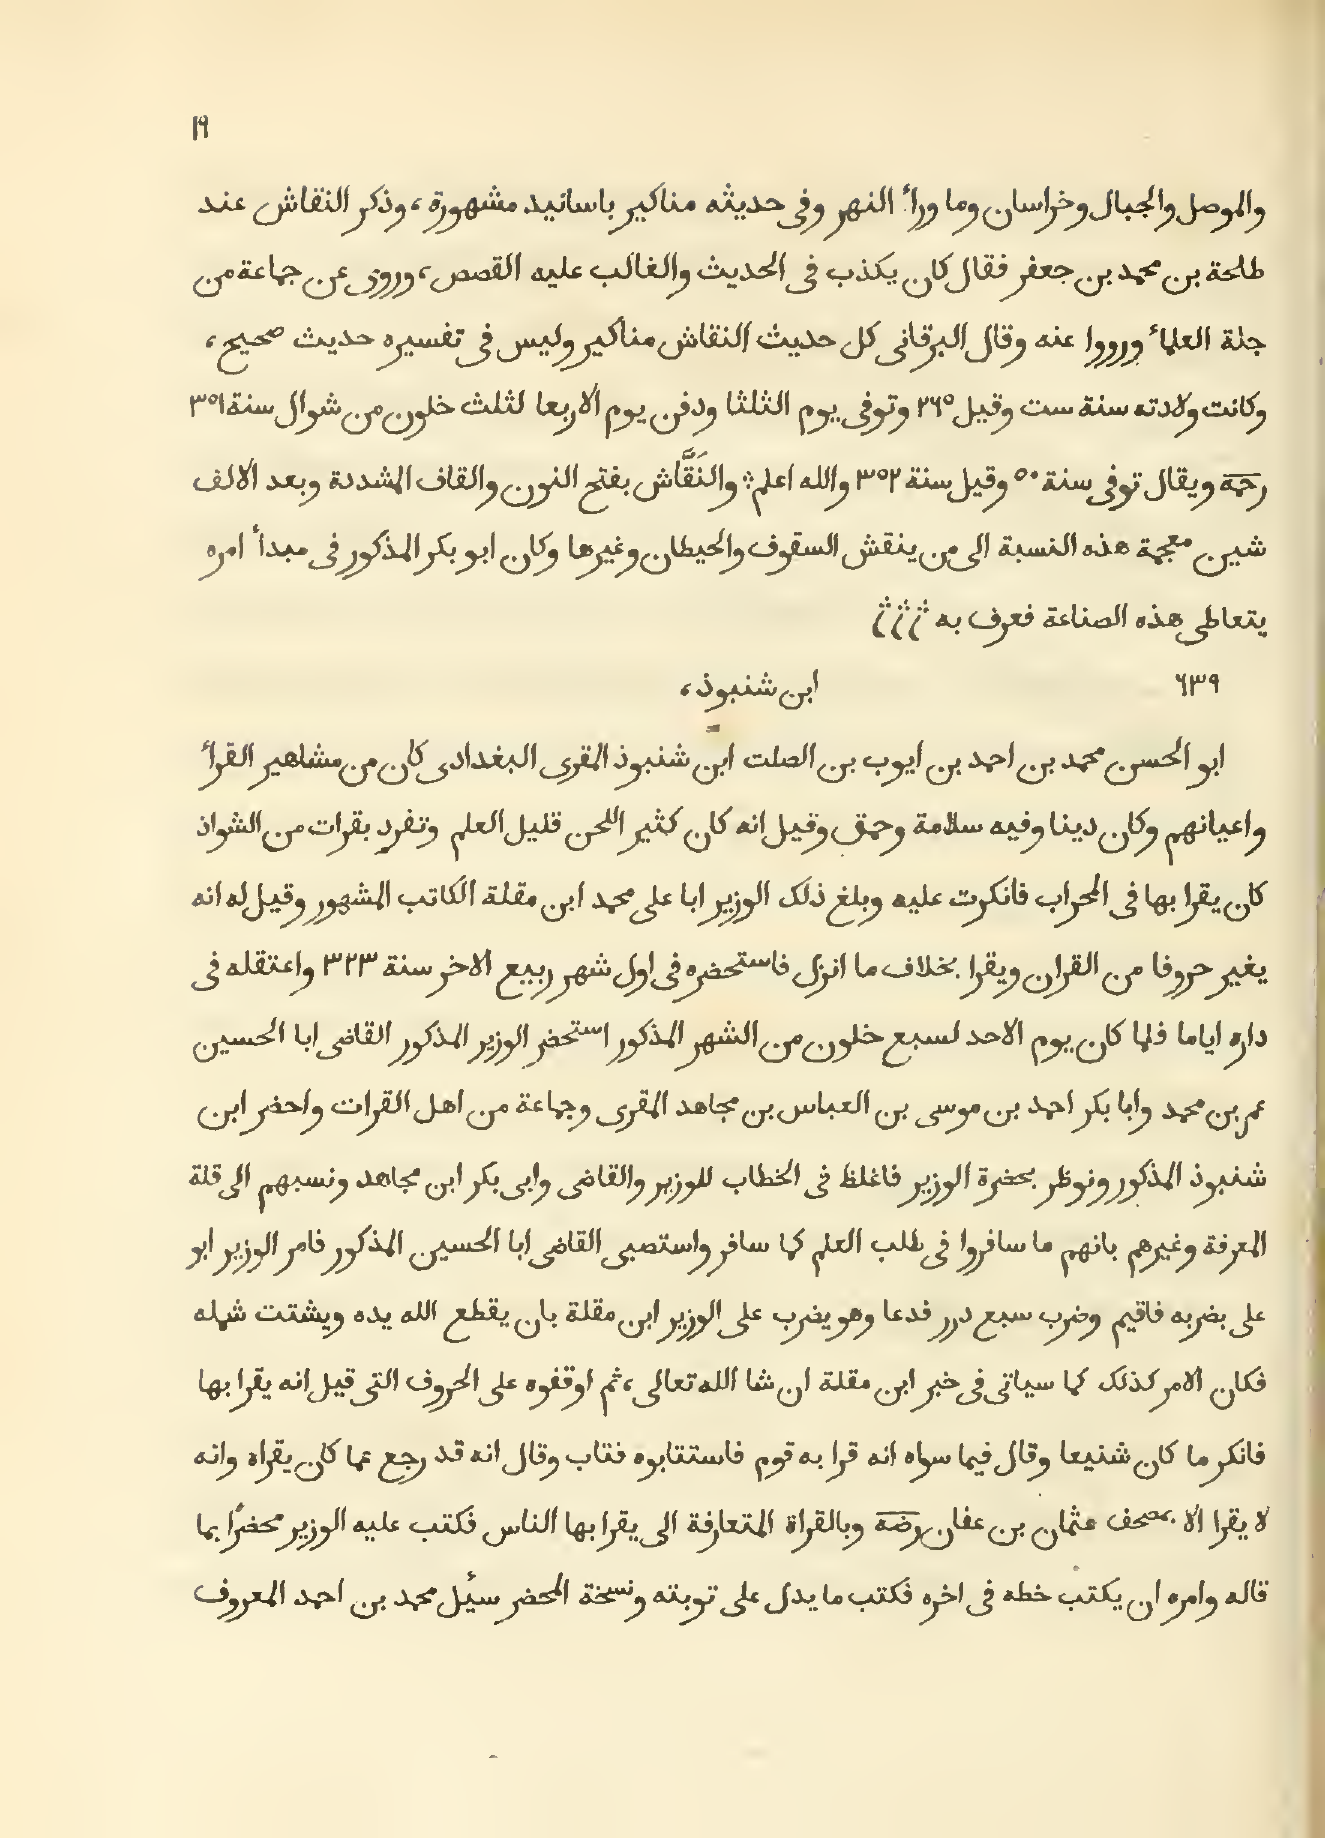 ١٩
والموصل والجبال وخراسان وما ورأ النهر وفى حديثه مناكير باسانيد مشهورة، وذكر النقاش عند
طلحة بن محمد بن جعفر فقال كان يكذب فى الحديث والغالب عليه القصص، وروى عن جماعة من
جلة العلمأ ورووا عنه وقال البرقانى كل حديث النقاش مناكير وليس فى تفسيره حديث صحيح،
وكانت ولادته سنة ست وقيل ٢٦٥ وتوفى يوم الثلثا ودفن يوم الاربعا لثلث خلون من شوال سنة ٣٥١
رحمه ويقال توفى سنة ٥٠ وقيل سنة ٣٥٢ والله اعلم ؞ والنَقَّاش بفتح النون والقاف المشددة وبعد الالف
شين معجمة هذه النسبة الى من ينقش السقوف والحيطان وغيرها وكان ابو بكر المذكور فى مبدأ امره
يتعاطى هذه الصناعة فعرف به ؞ ؞ ؞
٦٣٩ ابن شنبوذ،
ابو الحسن محمد بن احمد بن ايوب بن الصلت ابن شنبوذ المقرى البغدادى كان من مشاهير القرأ
واعيانهم وكان دينا وفيه سلامة وحمق وقيل انه كان كثير اللحن قليل العلم وتفرد بقرات من الشواذ
كان يقرا بها فى المحراب فانكرت عليه وبلغ ذلك الوزير ابا على محمد ابن مقلة الكاتب المشهور وقيل له انه
يغير حروفا من القران ويقرا بخلاف ما انزل فاستحضره فى اول شهر ربيع الاخر سنة ٣٢٣ واعتقله فى
داره اياما فلما كان يوم الاحد لسبع خلون من الشهر المذكور استحضر الوزير المذكور القاضى ابا الحسين
عمر بن محمد وابا بكر احمد بن موسى بن العباس بن مجاهد المقرى وجماعة من اهل القرات واحضر ابن
شنبوذ المذكور ونوظر بحضرة الوزير فاغلظ فى الخطاب للوزير والقاضى وابى بكر ابن مجاهد ونسبهم الى قلة
المعرفة وغيرهم بانهم ما سافروا فى طلب العلم كما سافر واستصبى القاضى ابا الحسين المذكور فامر الوزير ابو
على بضربه فاقيم وضرب سبع درر فدعا وهو يضرب على الوزير ابن مقلة بان يقطع الله يده ويشتت شمله
فكان الامر كذلك كما سياتى فى خبر ابن مقلة ان شا الله تعالى، ثم اوقفوه على الحروف التى قيل انه يقرا بها
فانكر ما كان شنيعا وقال فيما سواه انه قرا به قوم فاستتابوه فتاب وقال انه قد رجع عما كان يقراه وانه
لا يقرا الا بمصحف عثمان بن عفان رضه وبالقراة المتعارفة الى يقرا بها الناس فكتب عليه الوزير محضرًا بما
قاله وامره ان يكتب خطه فى اخره فكتب ما يدل على توبته ونسخة المحضر سيُل محمد بن احمد المعروف